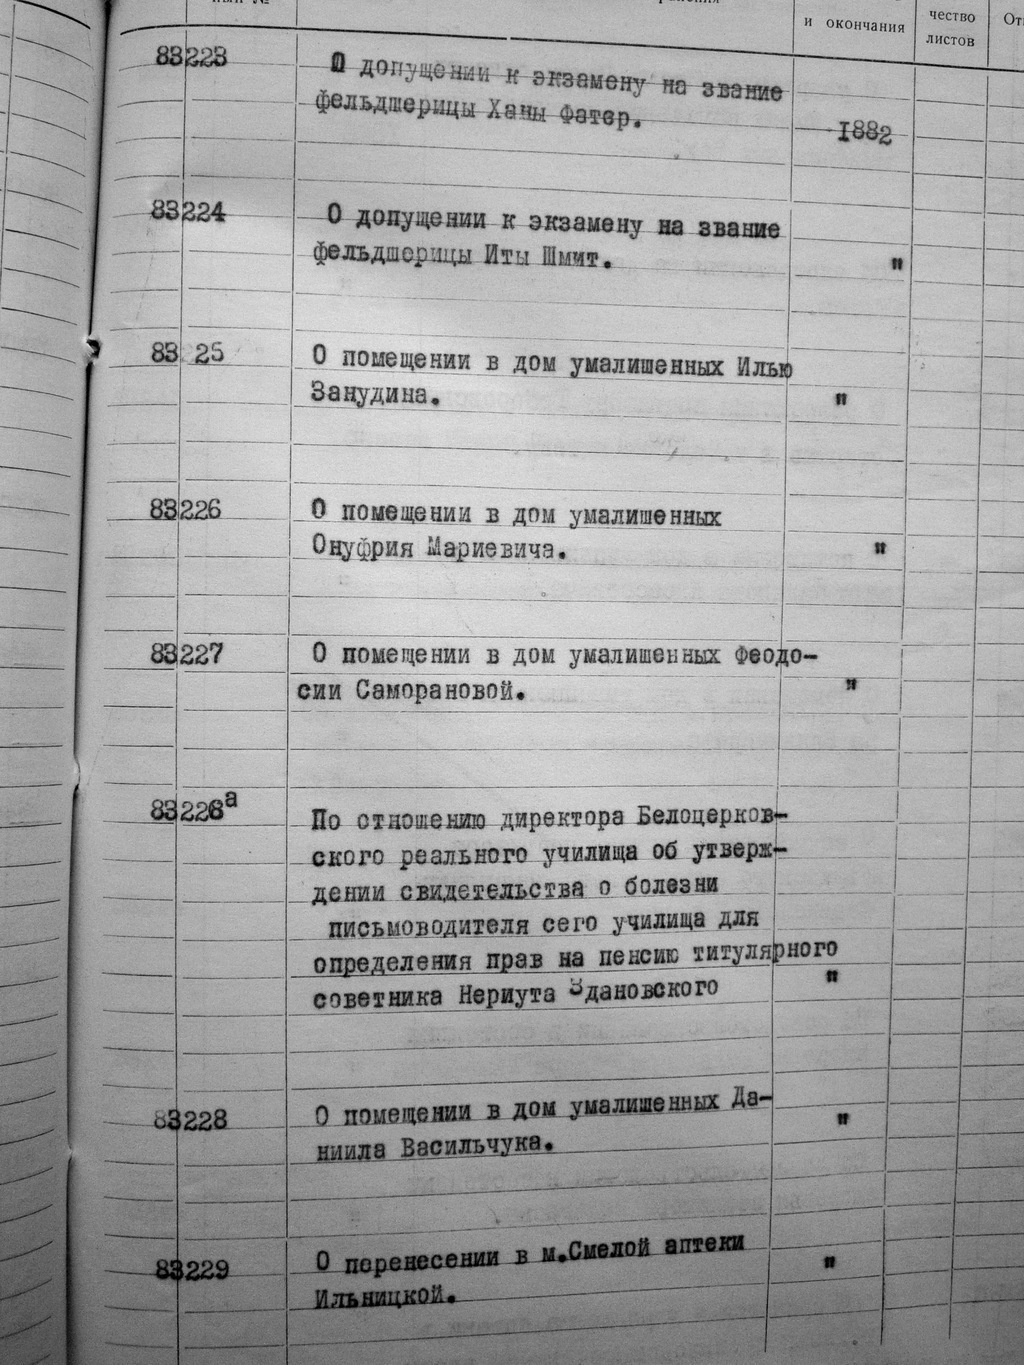 и окончания
чество
листов
83223 О допущении к экзамену на звание
фельдшерицы Ханы Фатер.
1882
83224 О допущении к экзамену на звание
фельдшерицы Иты Шмит. "
83 25 О помещении в дом умалишенных Илью
Занудина. "
83226 О помещении в дом умалишенных
Онуфрия Мариевича. "
83227 О помещении в дом умалишенных Феодо-
сии Саморановой. "
83228а По отношению директора Белоцерков-
ского реального училища об утверж-
дении свидетельства о болезни
письмоводителя сего училища для
определения прав на пенсию титулярного
советника Нериута Здановского "
83228 О помещении в дом умалишенных Да-
ниила Васильчука. "
83229 О перенесении в м.Смелой аптеки "
Ильницкой.